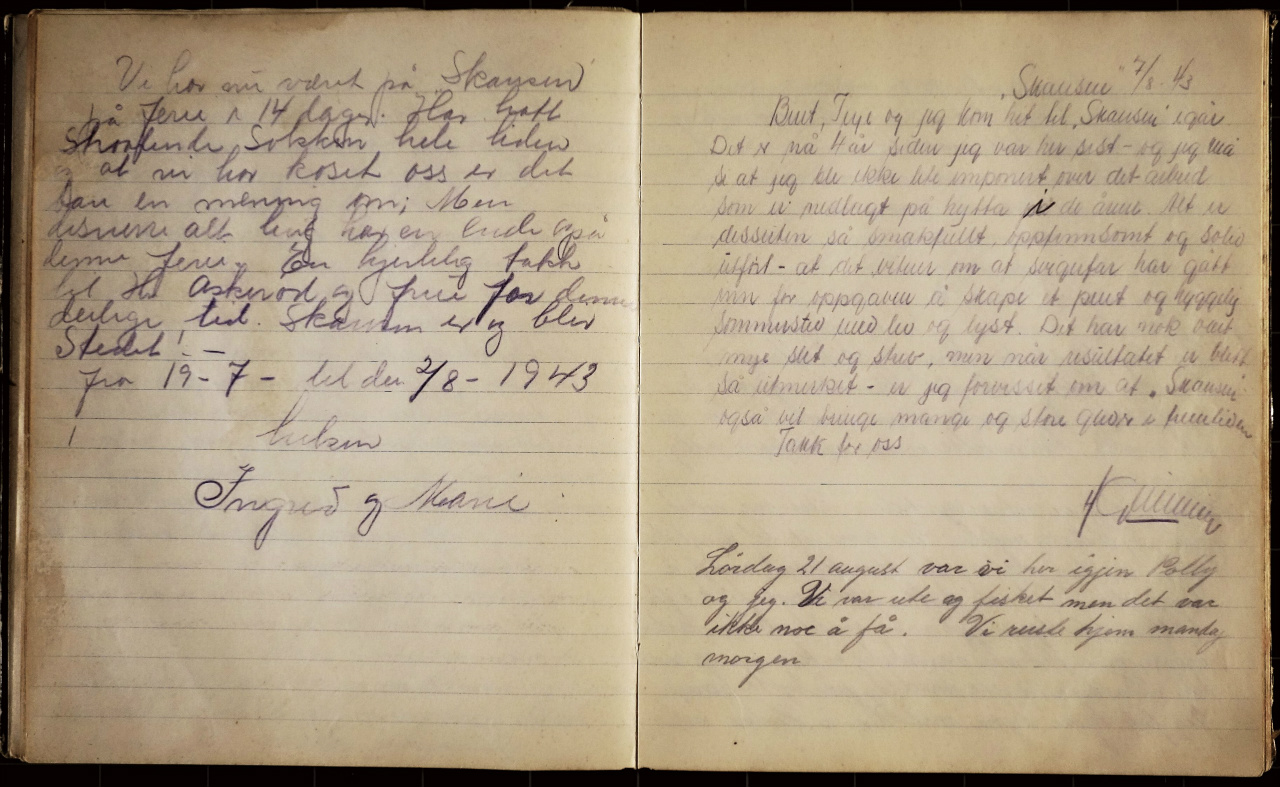 Vi har nu været på "Skansen"
på ferie i 14 dager. Har hatt
Strålende Solskin hele tiden
at vi har koset oss er det
bare en mening om; Men
desverre alt her har en Ende også
denne ferie. En hjertelig takk
til Hr Askerød og frue for denne
deilige tid. Skansen er og blir
Stedet! —
fra 19-7- til den 2/8-1943
hilsen
Ingrid og Marie
"Skansen" 7/8-43
Berit, Terje og jeg kom hit til "Skansen" igår.
Det er nå 4 år siden jeg var her sist - og jeg må
si at jeg ble ikke lite imponert over det arbeid
som er nedlagt på hytta i de årene. Alt er
dessuten så smakfullt, oppfinnsomt og solid
utført - at det vitner om at svigerfar har gått
inn for oppgaven å skape et pent og hyggelig
sommersted med liv og lyst. Det har nok vært
mye slit og strev, men når resultatet er blitt
så utmerket - er jeg forvisset om at "Skansen"
også vil bringe mange og store gleder i fremtiden
Takk for oss
Lördag 21 august var vi her igjen Polly
og jeg. Vi var ute og fisket men det var
ikke noe å få. Vi reiste hjem mandag
morgen